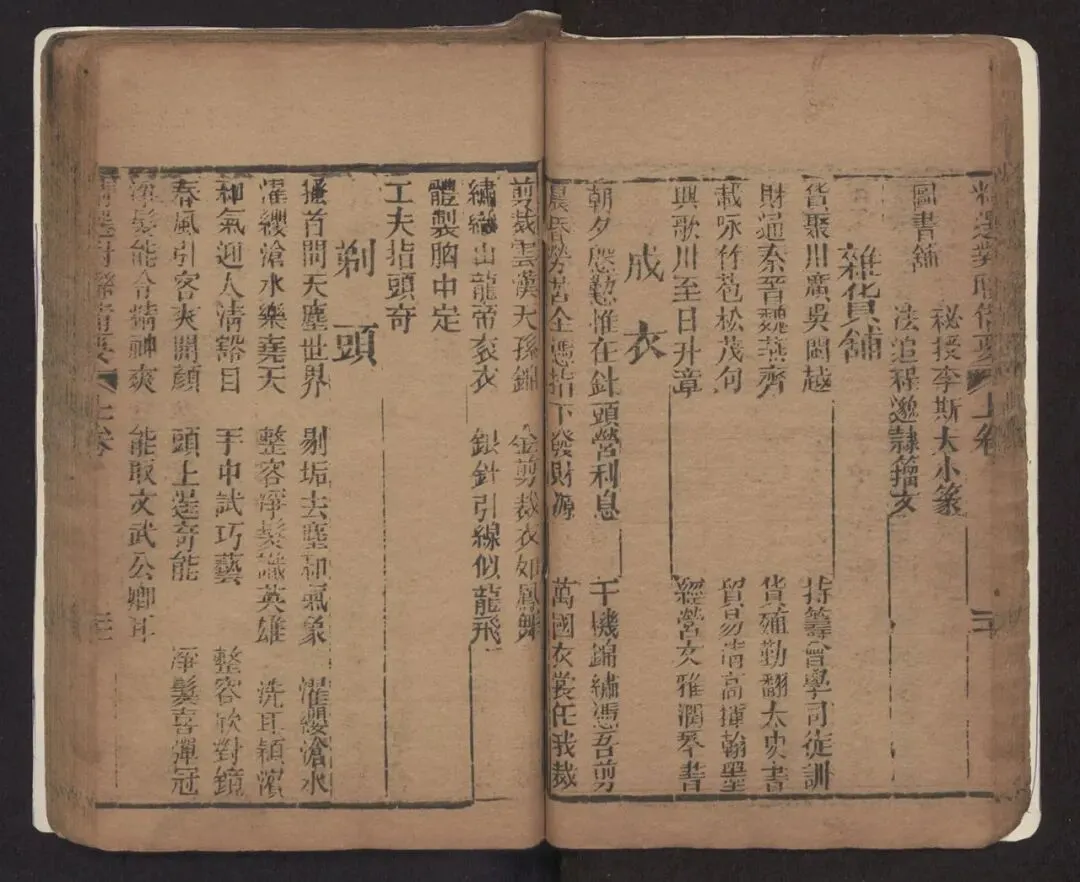 圖書舖
秘授李斯大小篆
法追程邈隷籀文
雜貨舖
貨聚川廣吳閩越
財通秦晉魏燕齊 持籌會學司徒訓
載咏竹苞松茂句 貨殖勤翻太史書
興歌川至日升章 貿易清高揮翰墨
經營文雅潤琴書
成衣
朝夕慇懃惟在針頭營利息 千機錦繡憑吾剪
晨昏勞苦全憑指下發財源 萬國衣裳任我裁
剪裁雲漢天孫錦 金剪裁衣如鳳舞
繡織出龍帝衮衣 銀針引線似龍飛
體製胸中定
工夫指頭奇
剃頭
搔首問天塵世界 剔垢去塵和氣象 濯纓滄水
濯纓滄水樂堯天 整容淨髪識英雄 洗耳潁濱
和氣迎人清豁目 手中試巧藝 整容欣對鏡
春風引客爽開顏 頭上逞奇能 淨髮喜彈冠
淨髮能令精神爽 能取文武公卿耳
上卷